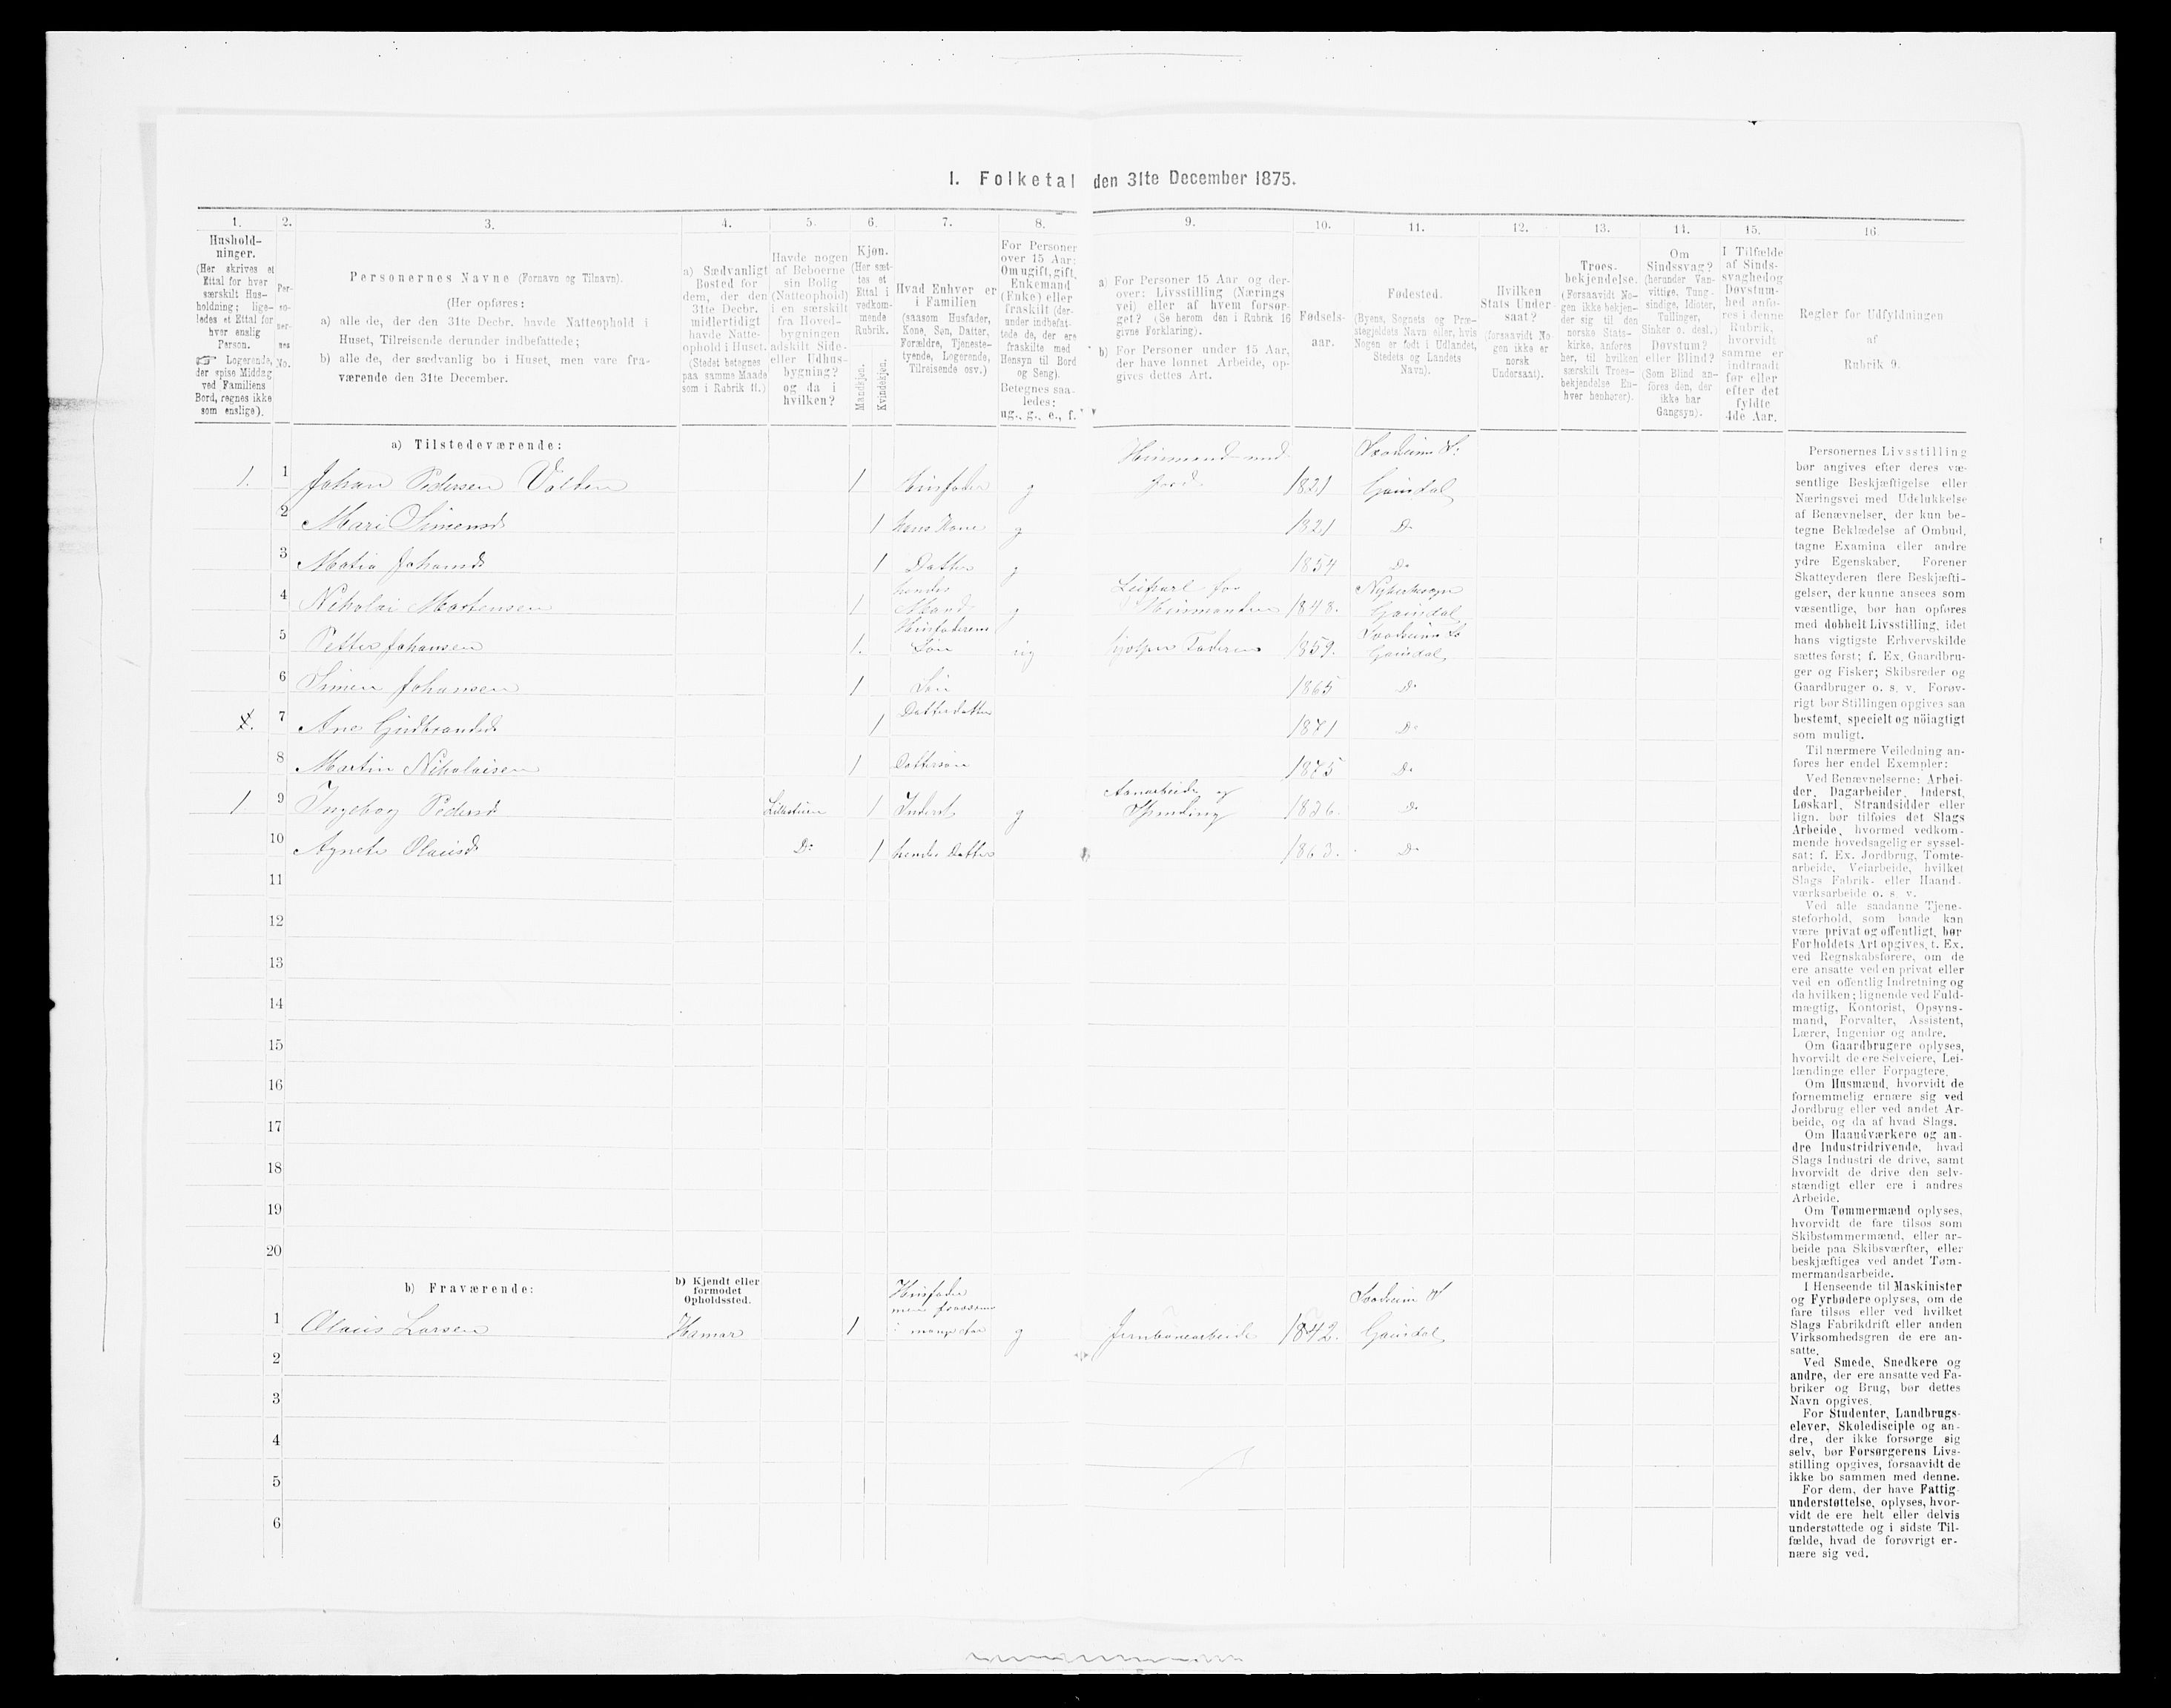 I. Folketal den 31te December 1875.
1. 2. 3. 4. 5. 6. 7. 8. 9. 10. 11. 12. 13. 14. 15. 16
Hushold-
ninger.
(Her skrives et
Ettal for hver
særskilt Hus-
holdning; lige-
ledes et Ettal for
hver enslig
Person.
☞ Logerende,
der spise Middag
ved Familiens
Bord, regnes ikke
som enslige).
Per-
so-
ner-
nes
No.
Personernes Navne (Fornavn og Tilnavn).
(Her opføres:
a) alle de, der den 31te Decbr. havde Natteophold i
Huset, Tilreisende derunder indbefattede;
b) alle de, der sædvanlig bo i Huset, men vare fra-
værende den 31te December.
a) Sædvanligt
Bosted for
dem, der den
31te Decbr.
midlertidigt
havde Natte-
ophold i Huset.
(Stedet betegnes
paa samme Maade
som i Rubrik 11.)
Havde nogen
af Beboerne
sin Bolig
(Natteophold)
i en særskilt
fra Hoved-
bygningen
adskilt Side-
eller Udhus-
bygning?
og da i
hvilken?
Kjøn.
(Her sæt-
tes et
Ettal i
vedkom-
mende
Rubrik.
Mandkjøn.
Kvindekjøn.
Hvad Enhver er
i Familien
(saasom Husfader,
Kone, Søn, Datter,
Forældre, Tjeneste-
tyende, Logerende,
Tilreisende osv.)
For Personer
over 15 Aar:
Om ugift, gift,
Enkemand
(Enke) eller
fraskilt (der-
under indbefat-
tede de, der ere
fraskilte med
Hensyn til Bord
og Seng).
Betegnes saa-
ledes:
ug., g., e., f.
a) For Personer 15 Aar og der-
over: Livsstilling (Nærings
vei) eller af hvem forsør-
get? (Se herom den i Rubrik 16
givne Forklaring).
b) For Personer under 15 Aar,
der have lønnet Arbeide, op-
gives dettes Art.
Fødsels-
aar.
Fødested.
(Byens, Sognets og Præ-
stegjeldets Navn eller, hvis
Nogen er født i Udlandet,
Stedets og Landets
Navn).
Hvilken
Stats Under
saat?
(forsaavidt No-
gen ikke er
norsk
Undersaat).
Troes-
bekjendelse.
(Forsaavidt No-
gen ikke bekjen-
der sig til den
norske Stats-
kirke, anføres
her, til hvilken
særskilt Troes-
bekjendelse En-
hver henhører).
Om
Sindssvag?
(herunder Van-
vittige, Tung-
sindige, Idioter,
Tullinger,
Sinker o. desl.)
Døvstum?
eller Blind?
(Som Blind an-
føres den, der
ikke har
Gangsyn).
I Tilfælde
af Sinds-
svaghed og
Døvstum-
hed anfø-
res i denne
Rubrik,
hvorvidt
samme er
indtraadt
før eller
efter det
fyldte
4de Aar.
Regler for Udfyldningen
af
Rubrik 9.
a) Tilstedeværende:
1. 1 Johan Pedersen Volden 1 Husfader g Husmand med Jord 1821 Gausdal
2 Mari Simensd 1 hans Kone g 1821 Do
3 Matia Johansd 1 Datter g 1854 Do
4 Nikolai Mortensen 1 hendes Mand g 1848. Gausdal
5 Petter Johansen 1. Husfaderens Søn ug hjelper Faderen 1859. Gausdal
6 Simen Johansen 1 Søn 1865 Do
7 Ane Gudbrandsd 1 Datterdatter 1871 Do
8 Martin Nikolaisen 1 Dattersøn 1875 Do
1 9 Ingeborg Pedersd 1 Inderst g Spinding 1826. Do
10 Agnete Olausd Do 1 hendes Datter 1863. Do
11
12
13
14
15
16
17
18
19
20
b) Fraværende:
b) Kjendt eller
formodet
Opholdssted.
1 Olaus Larsen Hamar 1 Husfader g Jernbanearbeide 1842. Gausdal
2
3
4
5
6
Personernes Livsstilling
bør angives efter deres væ-
sentlige Beskjæftigelse eller
Næringsvei med Udelukkelse
af Benævnelser, der kun be-
tegne Beklædelse af Ombud,
tagne Examina eller andre
ydre Egenskaber. Forener
Skatteyderen flere Beskjæfti-
gelser, der kunne ansees som
væsentlige, bør han opføres
med dobbelt Livsstilling, idet
hans vigtigste Erhvervskilde
sættes først; f. Ex. Gaardbru-
ger og Fisker; Skibsreder og
Gaardbruger o. s. v. Forøv-
rigt bør Stillingen opgives saa
bestemt, specielt og nøiagtigt
som muligt.
Til nærmere Veiledning an-
føres her endel Exempler:
Ved Benævnelserne: Arbei-
der, Dagarbeider, Inderst,
Løskarl, Strandsidder eller
lign. bør tilføies det Slags
Arbeide, hvormed vedkom-
mende hovedsagelig er syssel-
sat; f. Ex. Jordbrug, Tomte-
arbeide, Veiarbeide, hvilket
Slags Fabrik- eller Haand-
værksarbeide o. s. v.
Ved alle saadanne Tjene-
steforhold, som baade kan
være privat og offentligt, bør
Forholdets Art opgives, t. Ex.
ved Regnskabsførere, om de
ere ansatte ved en privat eller
ved en offentlig Indretning og
da hvilken; lignende ved Fuld-
mægtig, Kontorist, Opsyns-
mand, Forvalter, Assistent,
Lærer, Ingeniør og andre.
Om Gaardbrugere oplyses,
hvorvidt de ere Selveiere, Lei-
lændinge eller Forpagtere.
Om Husmænd, hvorvidt de
fornemmelig ernære sig ved
Jordbrug eller ved andet Ar-
beide, og da af hvad Slags.
Om Haandværkere og an-
dre Industridrivende, hvad
Slags Industri de drive, samt
hvorvidt de drive den selv-
stændigt eller ere i andres
Arbeide.
Om Tømmermænd oplyses,
hvorvidt de fare tilsøs som
Skibstømmermænd, eller ar-
beide paa Skibsværfter, eller
beskjæftiges ved andet Tøm-
mermandsarbeide.
I Henseende til Maskinister
og Fyrbødere oplyses, om de
fare tilsøs eller ved hvilket
Slags Fabrikdrift eller anden
Virksomhedsgren de ere an-
satte.
Ved Smede, Snedkere og
andre, der ere ansatte ved Fa-
briker og Brug, bør dettes
Navn opgives.
For Studenter, Landbrugs-
elever, Skoledisciple og an-
dre, der ikke forsørge sig
selv, bør Forsørgerens Livs-
stilling opgives, forsaavidt de
ikke bo sammen med denne.
For dem, der have Fattig-
understøttelse, oplyses, hvor-
vidt de ere helt eller delvis
understøttede og i sidste Til-
fælde, hvad de forøvrigt er-
nære sig ved.